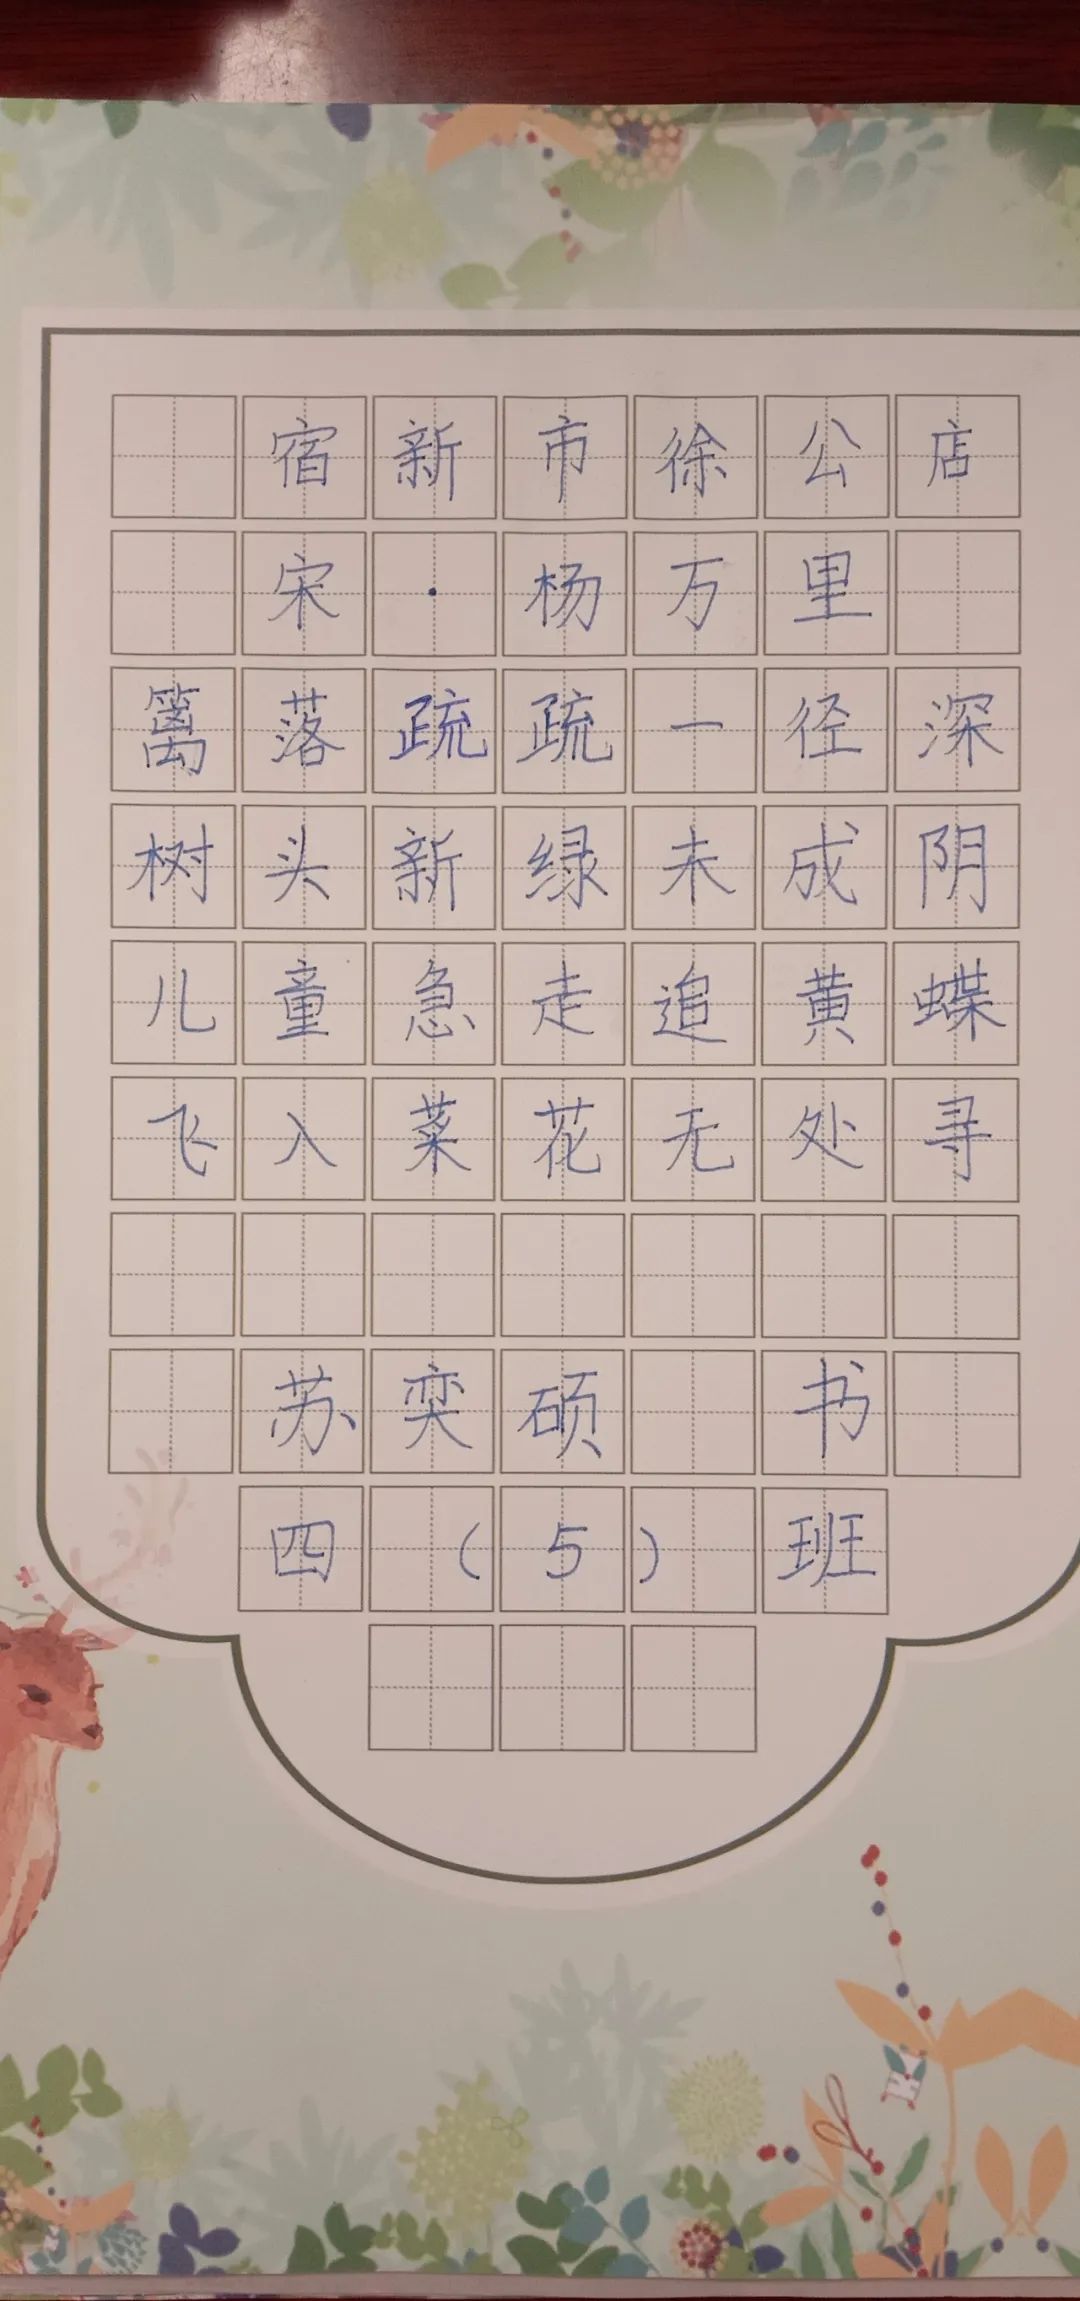 宿新市徐公店
宋·杨万里
篱落疏疏一径深
树头新绿未成阴
儿童急走追黄蝶
飞入菜花无处寻
苏奕硕 书
四(5)班